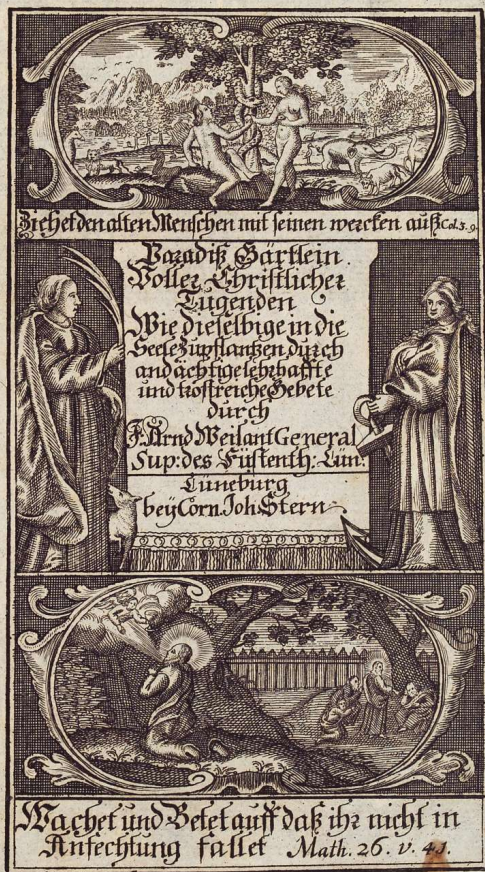 Ziehet den alten Menschen mit seinen wercken auß Col. 3. 9.
Paradiß Gärtlein
Voller Christlicher
Tugenden
Wie dieselbige in die
Seele zupflantzen durch
andächtige lehrhaffte
und trostreiche Gebete
durch
J. Arnd Weilant General
Sup: des Füstenth: Lün:
Lüneburg
bey Corn. Joh. Stern
Wachet und Betet auff daß ihr nicht in
Anfechtung fallet Math. 26. v. 41.